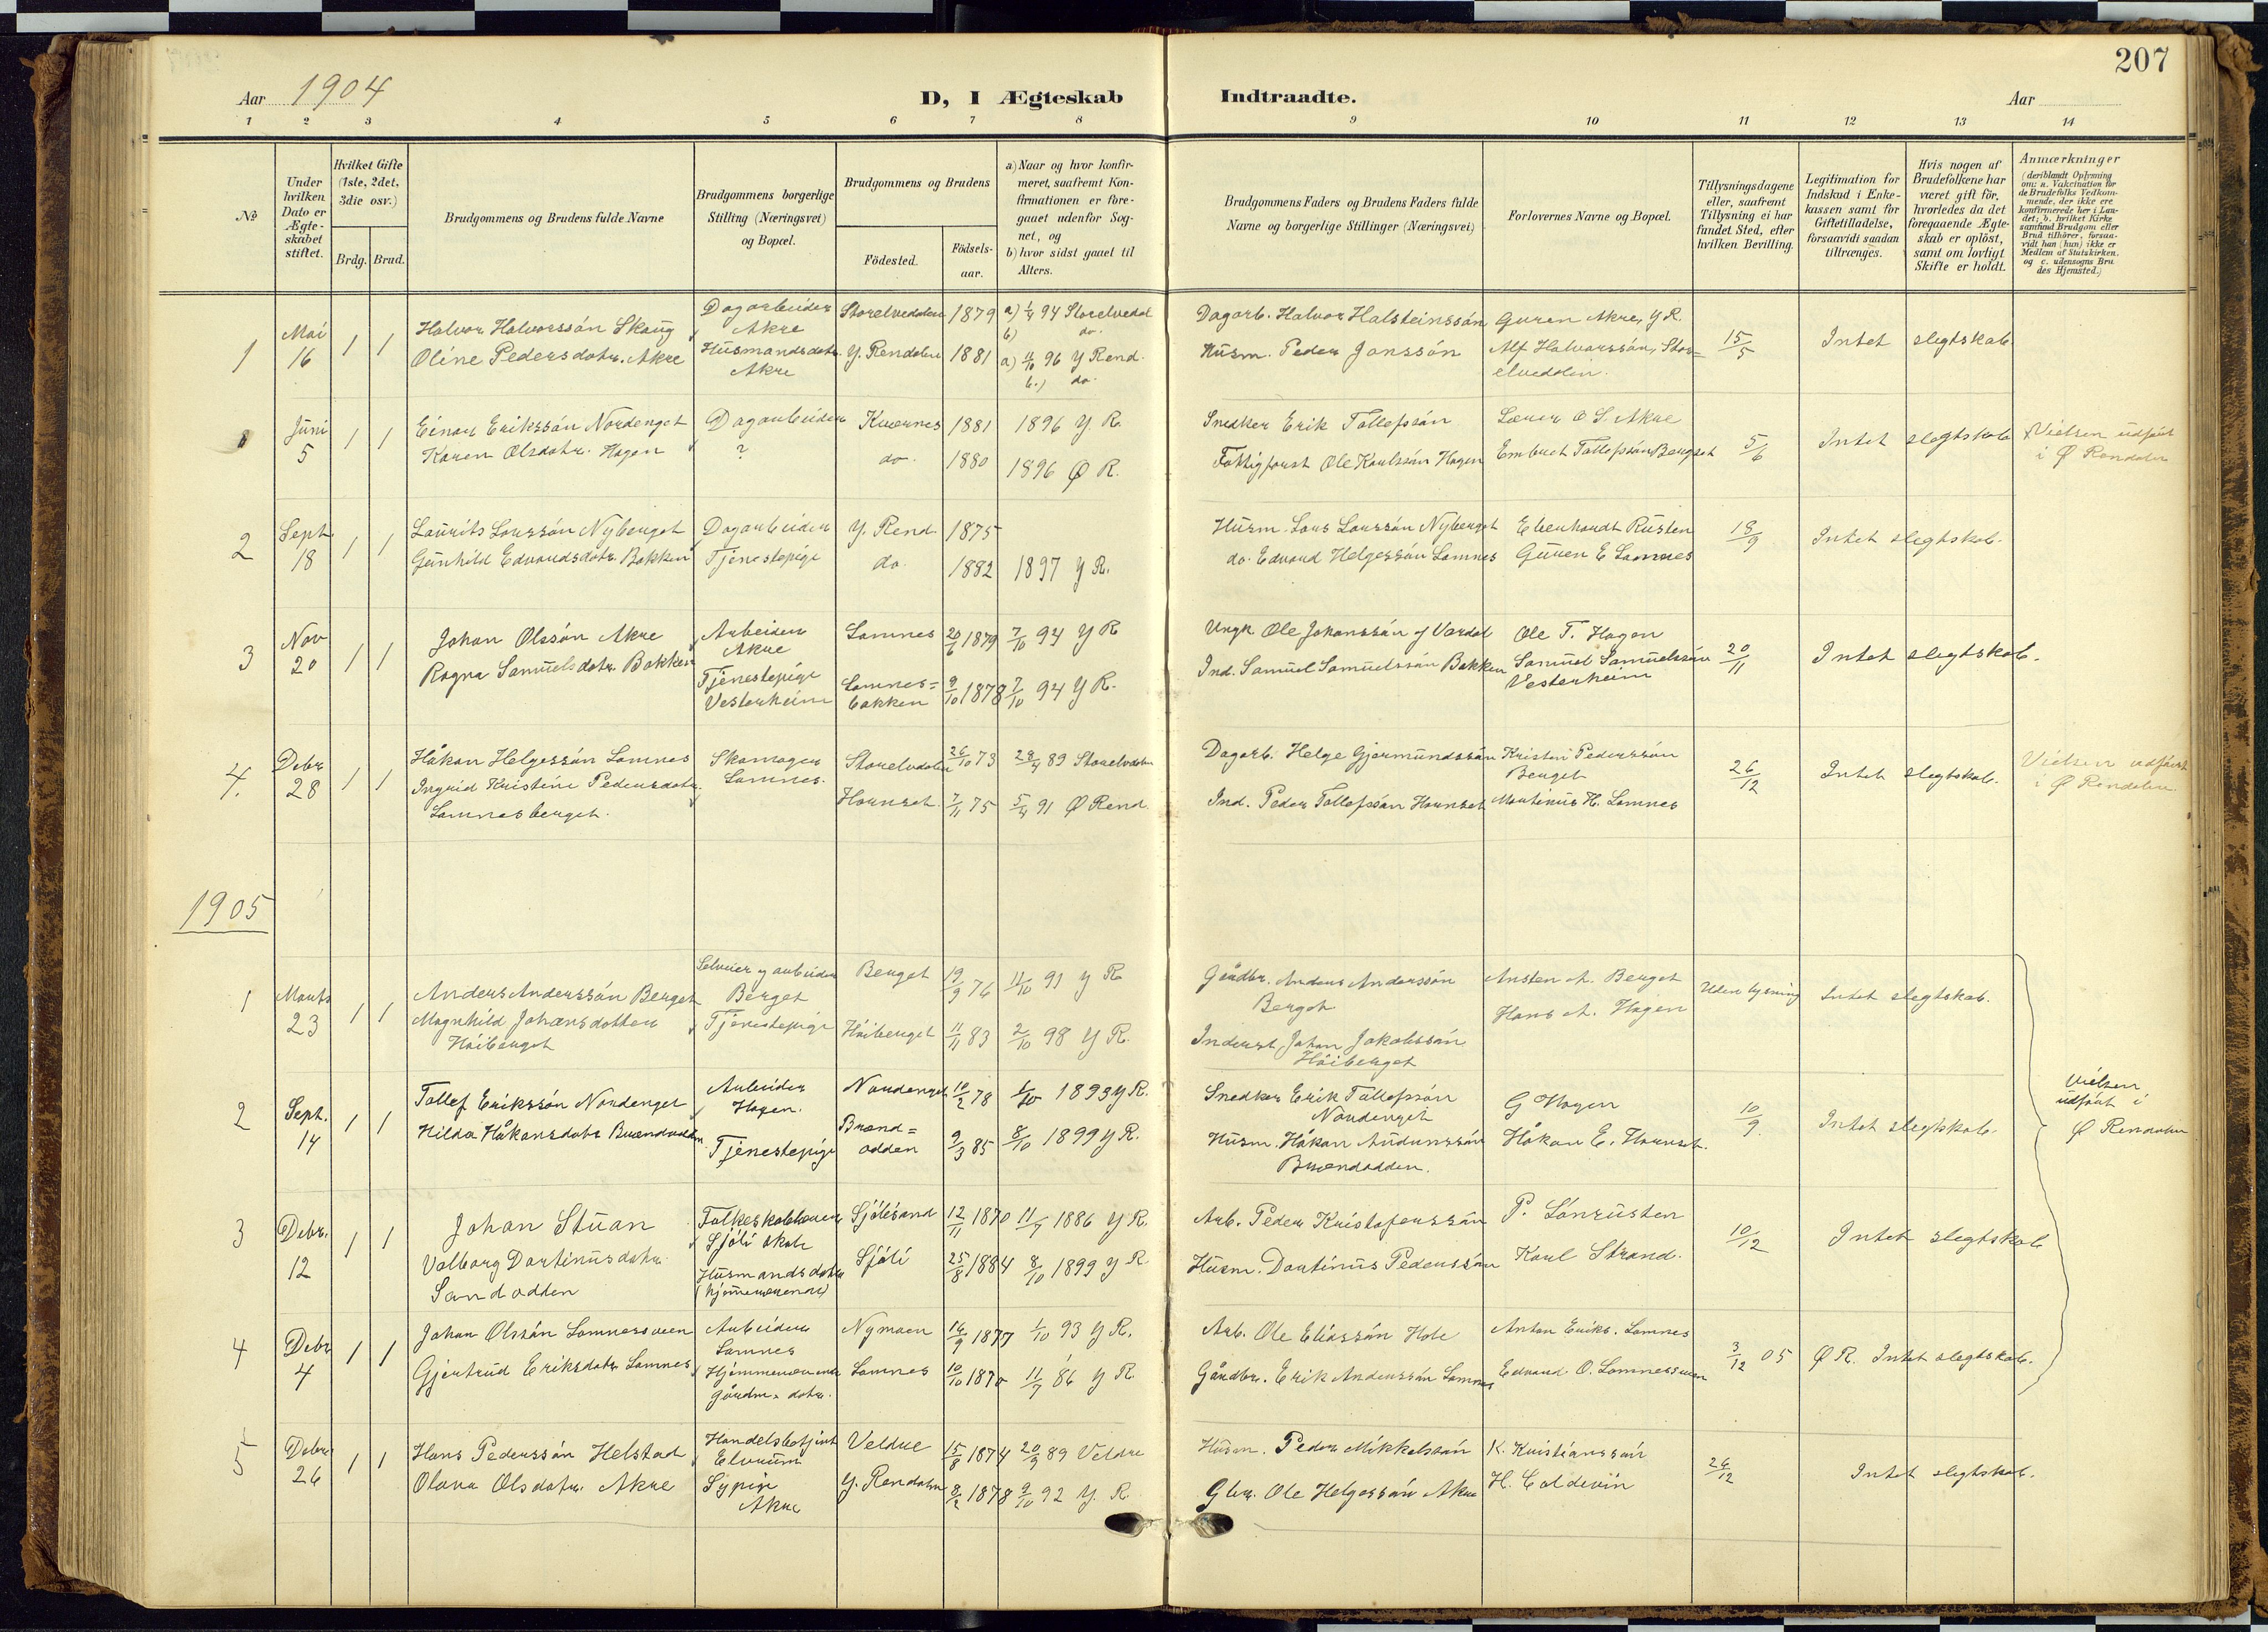 207
Aar 1904
D, I Ægteskab
Indtraadte.
Aar
1 2 3 4 5 6 7 8 9 10 11 12 13 14
No
Under hvilken Dato er Ægteskabet stiftet.
Hvilket Gifte (1ste, 2det, 3die osv.)
Brdg. Brud.
Brudgommens og Brudens fulde Navne
Brudgommens borgerlige Stilling (Næringsvei) og Bopæl.
Brudgommens og Brudens
Födested.
Födsels-aar.
a) Naar og hvor konfir-meret, saafremt Kon-firmationen er fore-gaaet udenfor Sog-net, og
b) hvor sidst gaaet til Alters.
Brudgommens Faders og Brudens Faders fulde Navne og borgerlige Stillinger (Næringsvei)
Forlovernes Navne og Bopæl.
Tillysningsdagene eller, saafremt Tillysning ei har fundet Sted, efter hvilken Bevilling.
Legitimation for Indskud i Enke-kassen samt for Giftetilladelse, forsaavidt saadan tiltrænges.
Hvis nogen af Brudefolkene har været gift för, hvorledes da det foregaaende Ægte-skab er oplöst, samt om lovligt Skifte er holdt.
Anmærkninger (deriblandt Oplysning om: a. Vakcination for de Brudefolks Vedkom-mende, der ikke ere konfirmerede her i Lan-det; b. hvilket Kirke samfund Brudgom eller Brud tilhörer, forsaa-vidt han (hun) ikke er Medlem af Statskirken. og c. udensogns Bru des Hjemsted.)
1 Mai 16 1 1 Halvor Halvorssön Skaug Dagarbeider Akre Storelvedalen 1879 a) 94 Storelvedal b) do. Dagarb. Halvor Halsteinssön Guren Akre, Y R. 15/5 Intet slegtskab
Oline Pedersdotr. Akre Husmandsdotr. Akre Y. Rendalen 1881 a) 96 Y Rend. b.) do. Husm. Peder Jonssön Alf Halvorssön, Stor=elvedalen.
Juni 5 1 1 Einar Erikssön Nordenget Dagarbeider Kværnes 1881 1896 Y. R. Snedker Erik Tollefssön Lærer O S. Akre 5/6 Intet slegtskab Vielsen udført i Ø Rendalen
Karen Olsdotr. Hagen ? do. 1880 1896 Ø R. Fattigforst Ole Karlssön Hagen Embret Tollefssön Berget
2 Sept. 18 1 1 Laurits Larssön Nyberget Dagarbeider Y. Rend. 1875 Husm. Lars Larssön Nyberget Eberhardt Rusten 18/9 Intet slegtskab.
Gunhild Edvardsdotr. Bakken Tjenestepige do. 1882 1897 Y R. do. Edvard Helgessön Lomnes Guren E Lomnes
3 Nov 20 1 1 Johan Olssön Akre Arbeider Akre Lomnes 1879 7/10 94 Y R Ungk. Ole Johanssön Ole T. Hagen 20/11 Intet slegtskab.
Ragna Samuelsdotr. Bakken Tjenestepige Vesterheim Lomnes=bakken 9/10 1878 7/10 94 Y R. Ind. Samuel Samuelssön Bakken Samuel Samuelssön Vesterheim
4. Debr 28 1 1 Håkon Helgessön Lomnes Skomager Lomnes. Storelvdalen 26/10 73 89 Storelvdalen Dagarb. Helge Gjermundssön Kristen Pederssön Berget 26/12 Intet slegtskab. Vielsen udført i Ø Rendalen.
Ingrid Kristine Pedersdotr. Lomnesberget. Hornset. 7/11 75 91 Ø Rend. Ind. Peder Tollefssön Hornset Martinus H. Lomnes
1905
1 Marts 23 1 1 Anders Anderssön Berget Selveier og arbeider Berget Berget 19/9 76 11/10 91 Y R Gårdbr. Anders Anderssön Berget Austen A. Berget Uden lysning Intet slegtskab.
Magnhild Johansdotter Höiberget Tjenestepige Höiberget 11/11 83 2/10 98 Y R. Inderst Johan Jakobssön Höiberget Hans A. Hagen
2 Sept. 14 1 1 Tollef Erikssön Nordenget Arbeider Hagen. Nordenget 10/2 78 1/10 1893 Y R. Snedker Erik Tollefssön Nordenget G Hagen 10/9 Intet slegtskab. Vielsen udført i Ø Rendalen
Hilda Håkonsdotr Brændodden Tjenestepige Brænd=odden 9/3 85 8/10 1899 Y R. Husm. Håkon Audunssön Brændodden. Håkon E. Hornset.
3 Debr. 12 1 1 Johan Stuan Folkeskolelærer Sjöli skole Sjölisand 12/11 1870 11/7 1886 Y R. Arb. Peder Kristoferssön P. Lönrusten 10/12 Intet slegtskab
Valborg Dortinusdotr. Sandodden Husmandsdotr (hjemmeværende) Sjöli 25/8 1884 8/10 1899 Y R Husm. Dortinus Pederssön Karl Strand.
4 Debr 4 1 1 Johan Olssön Lomnessveen Arbeider Lomnes Nymoen 14/9 1877 1/10 93 Y R. Arb. Ole Eliassön Hole Anton Eriks. Lomnes 3/12 05 Ø R. Intet slegtskab.
Gjertrud Eriksdotr Lomnes Hjemmeværende gårdm. dotr. Lomnes 10/10 1870 11/7 86 Y R Gårdbr. Erik Anderssön Lomnes Edvard O. Lomnessveen
5 Debr 26 1 1 Hans Pederssön Helstad Handelsbetjent Elverum Veldre 15/8 1874 20/9 89 Veldre Husm. Peder Mikkelssön K. Kristianssön 26/12 Intet slegtskab.
Olava Olsdotr. Akre Sypige Akre Y. Rendalen 8/2 1878 9/10 92 Y. R. Gbr. Ole Helgessön Akre H. Coldevin